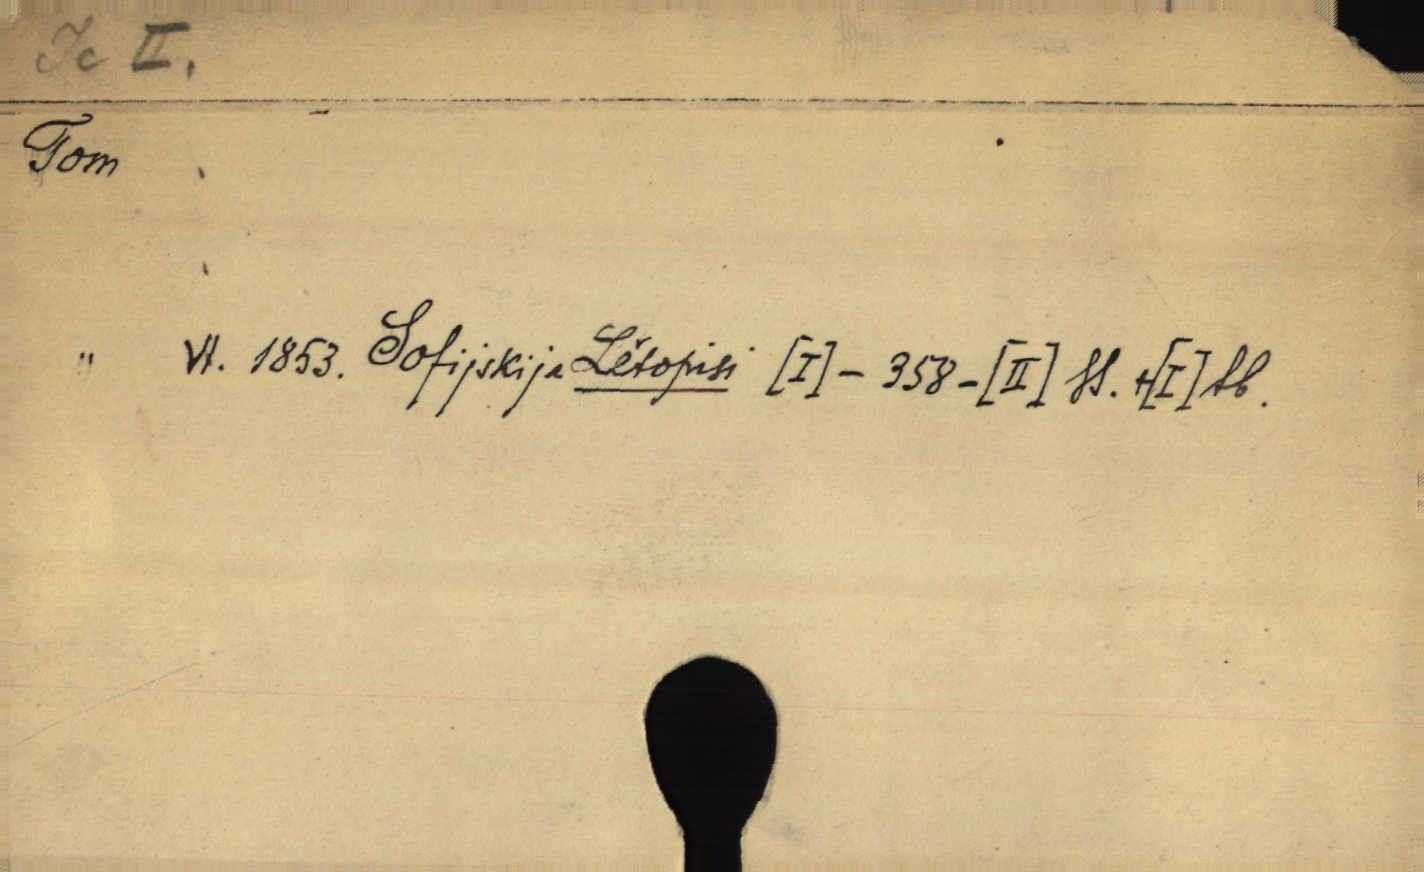 Ic II.
Tom
" VI. 1853. Sofijskija Lětopisi [I] – 358 – [II] SS. + [I] tb.